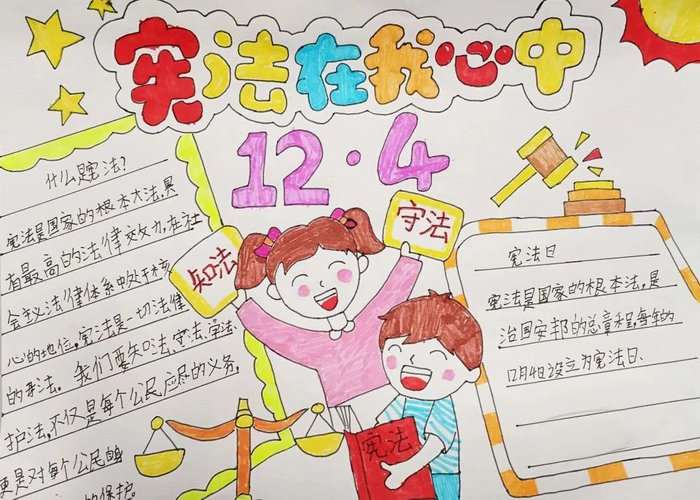 宪法在我心中
12·4
什么是宪法?
宪法是国家的根本大法,具
有最高的法律效力,在社
会主义法律体系中处于核
心的地位,宪法是一切法律
的母法。我们要知法、守法、学法、
护法,不仅是每个公民应尽的义务,
更是对每个公民的
的保护。
知法
守法
宪法
宪法日
宪法是国家的根本法,是
治国安邦的总章程,每年的
12月4日设立为宪法日.